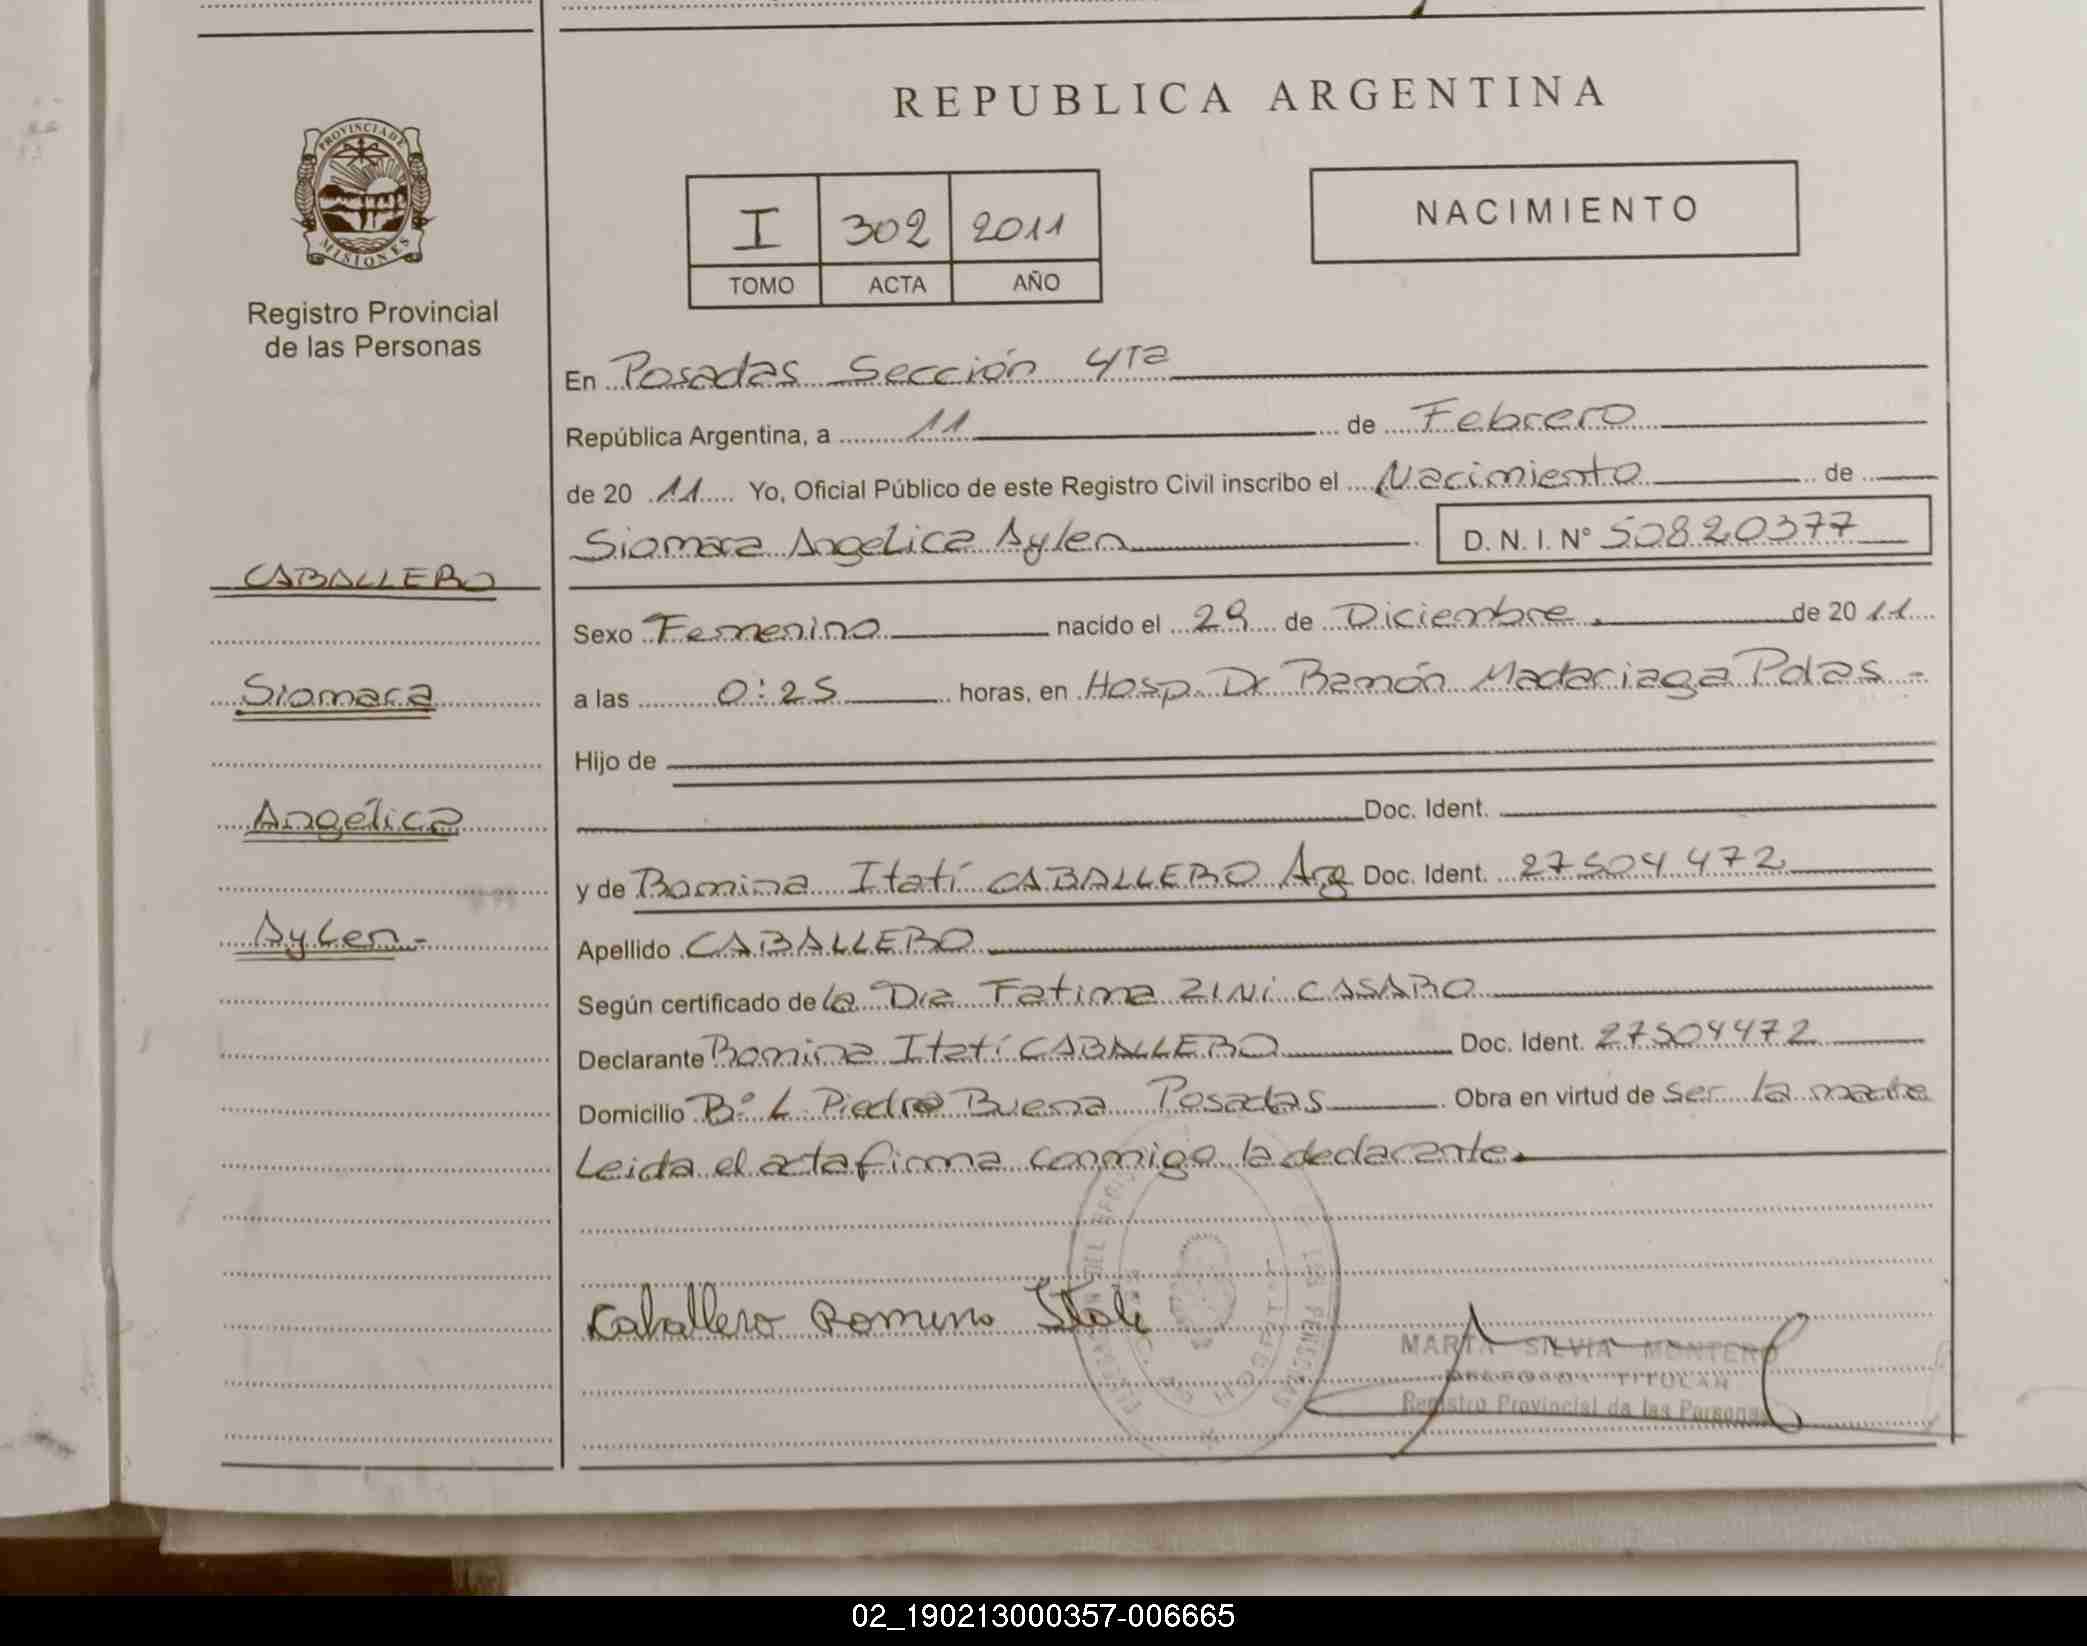 REPUBLICA ARGENTINA
PROVINCIA DE
MISIONES
Registro Provincial
de las Personas
I 302 2011
TOMO ACTA AÑO
NACIMIENTO
En Posadas Sección 4ta
República Argentina, a 11 de Febrero
de 20 11 Yo, Oficial Público de este Registro Civil inscribo el Nacimiento de
Siomara Angelica Aylen D. N. I. N° 50820377
CABALLERO
Siomara
Angélica
Aylen-
Sexo Femenino nacido el 29 de Diciembre de 20 11
a las 0:25 horas, en Hosp. Dr Ramón Madariaga Pdas -
Hijo de
Doc. Ident.
y de Romina Itatí CABALLERO Arg Doc. Ident. 27504472
Apellido CABALLERO
Según certificado de la Dra Fatima ZINI CASARO
Declarante Romina Itatí CABALLERO Doc. Ident. 27504472
Domicilio B° L. Piedra Buena Posadas Obra en virtud de ser la madre
Leida el acta firma conmigo la declarante.
Caballero Romina Itati
MARTA SILVIA MONTERO
DELEGADA TITULAR
Registro Provincial de las Personas
02_190213000357-006665